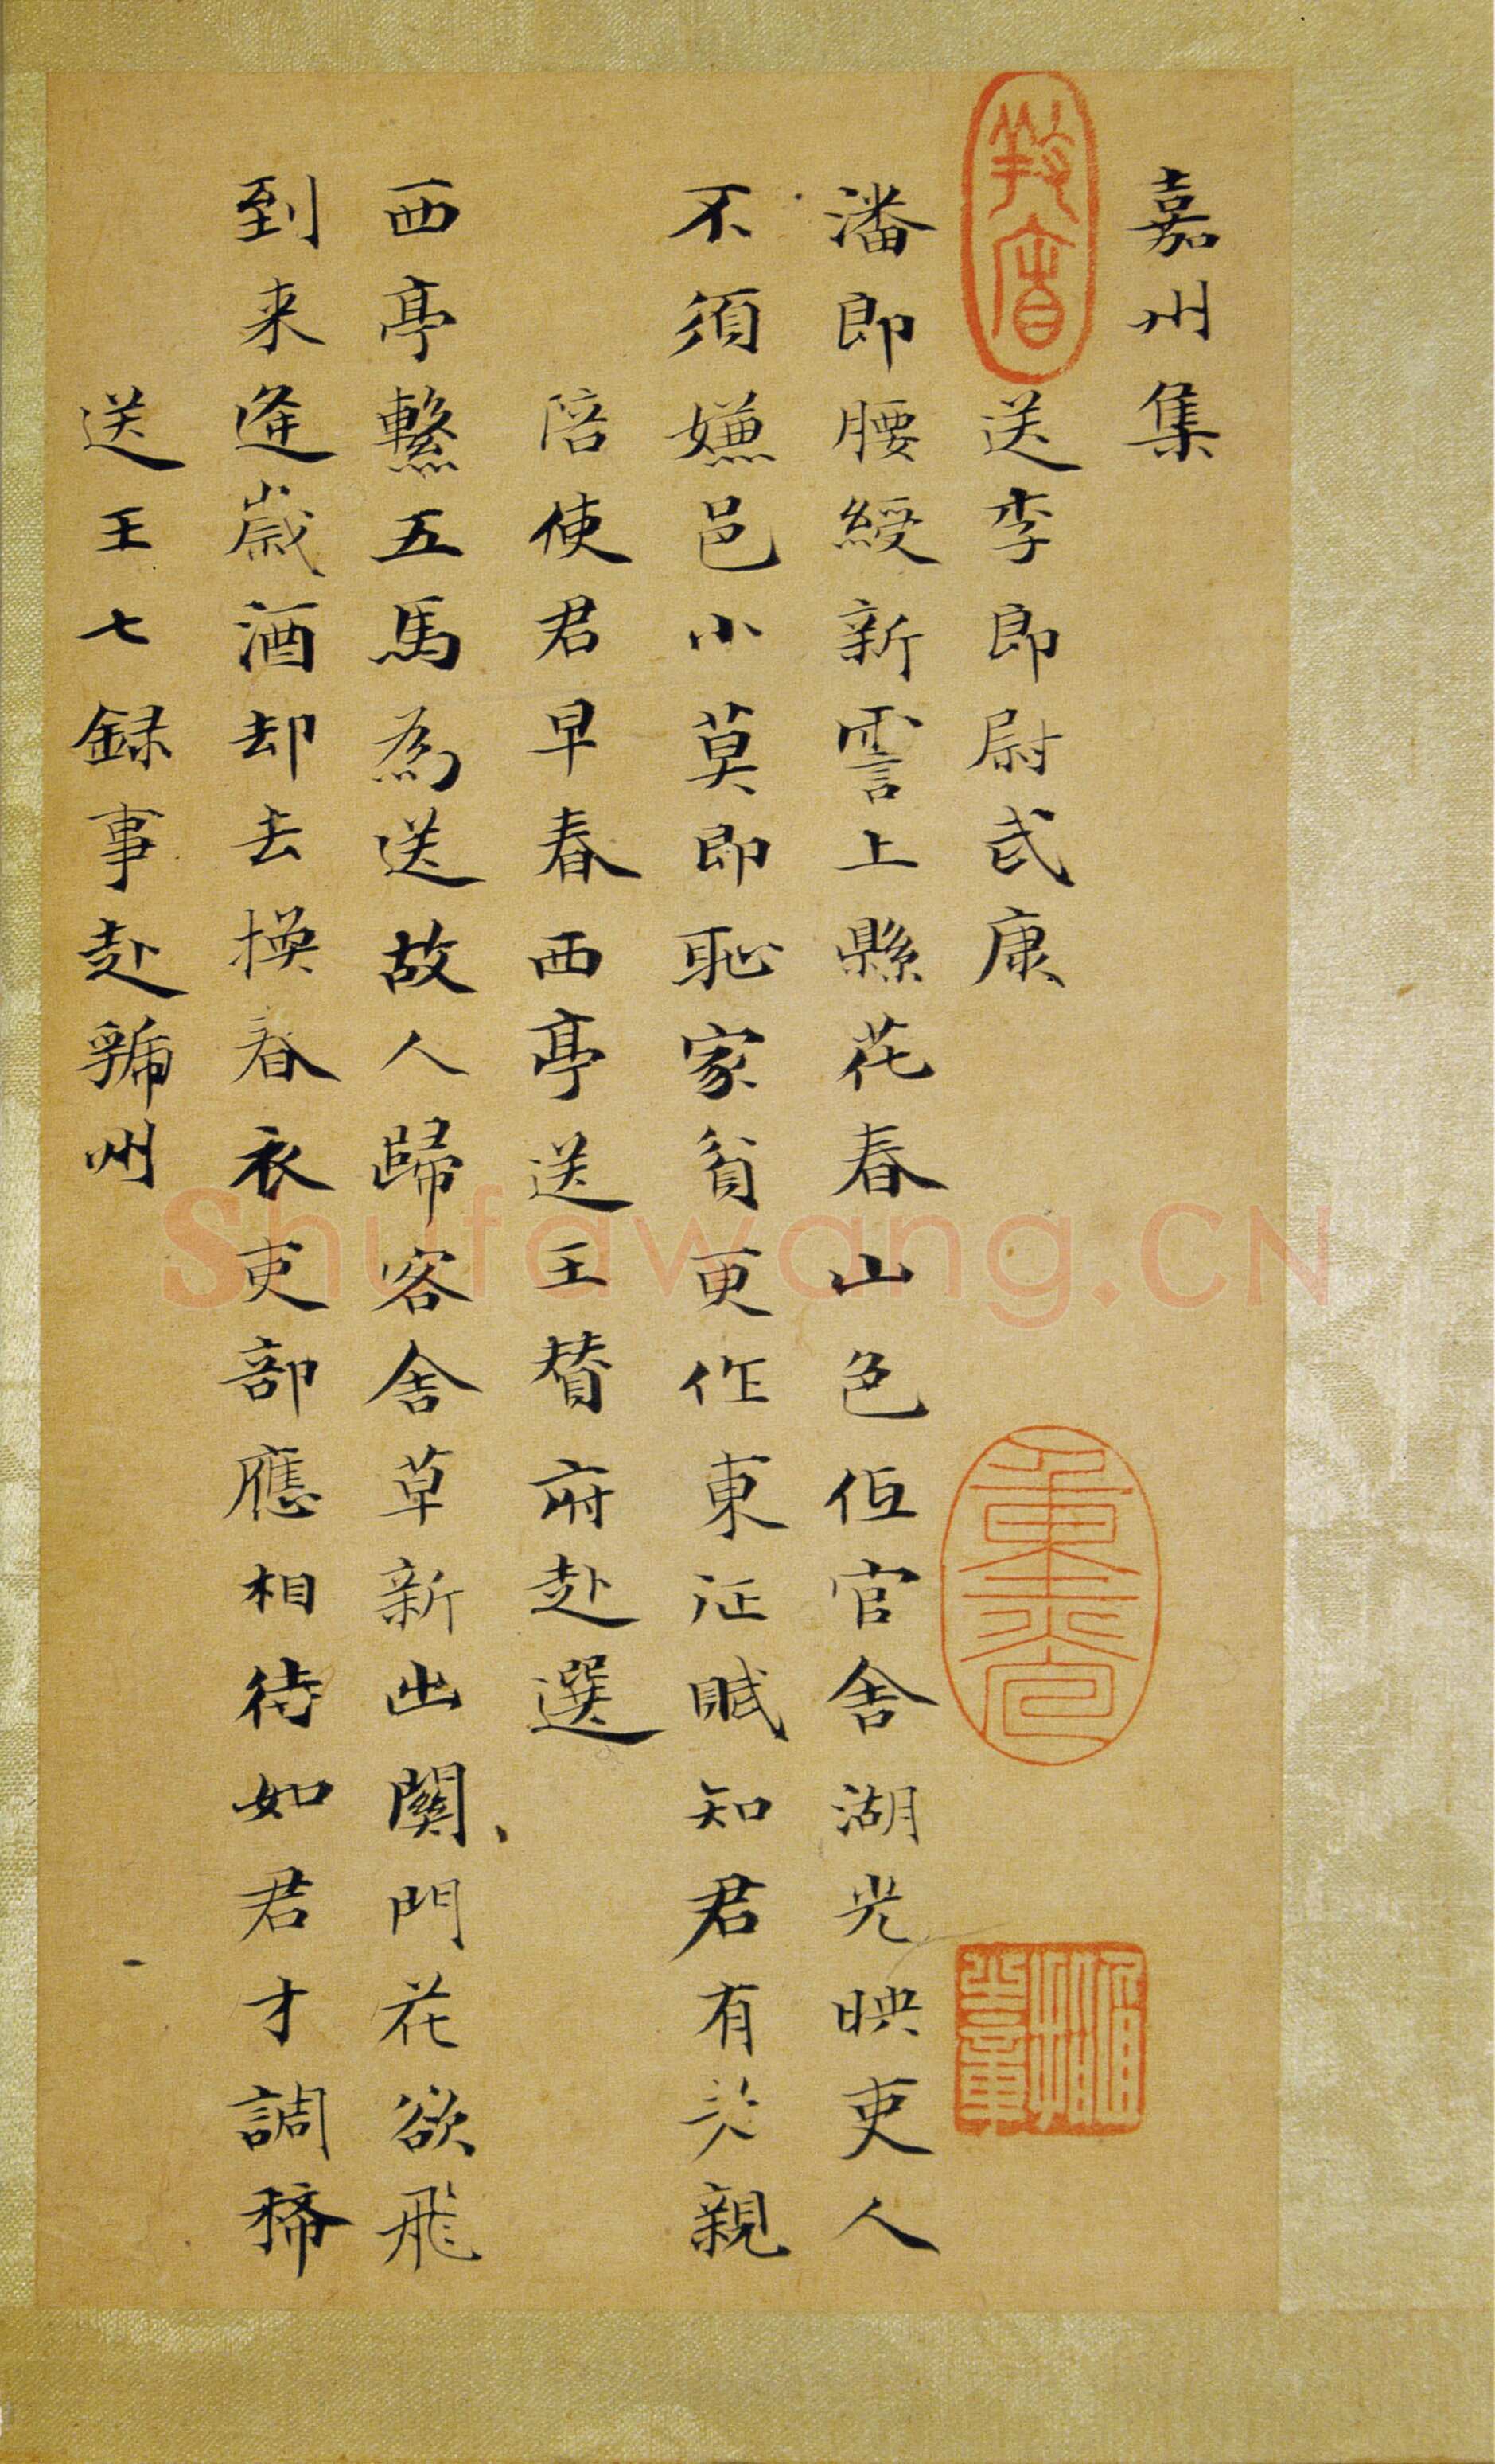 嘉州集
送李郎尉武康
潘郎腰綬新霅上縣花春山色低官舍湖光映吏人
不須嫌邑小莫即恥家貧更作東征賦知君有老親
陪使君早春西亭送王贊府赴選
西亭繫五馬為送故人歸客舍草新出關門花欲飛
到来逢歲酒却去換春衣吏部應相待如君才調稀
送王七録事赴虢州
Shufawang.CN